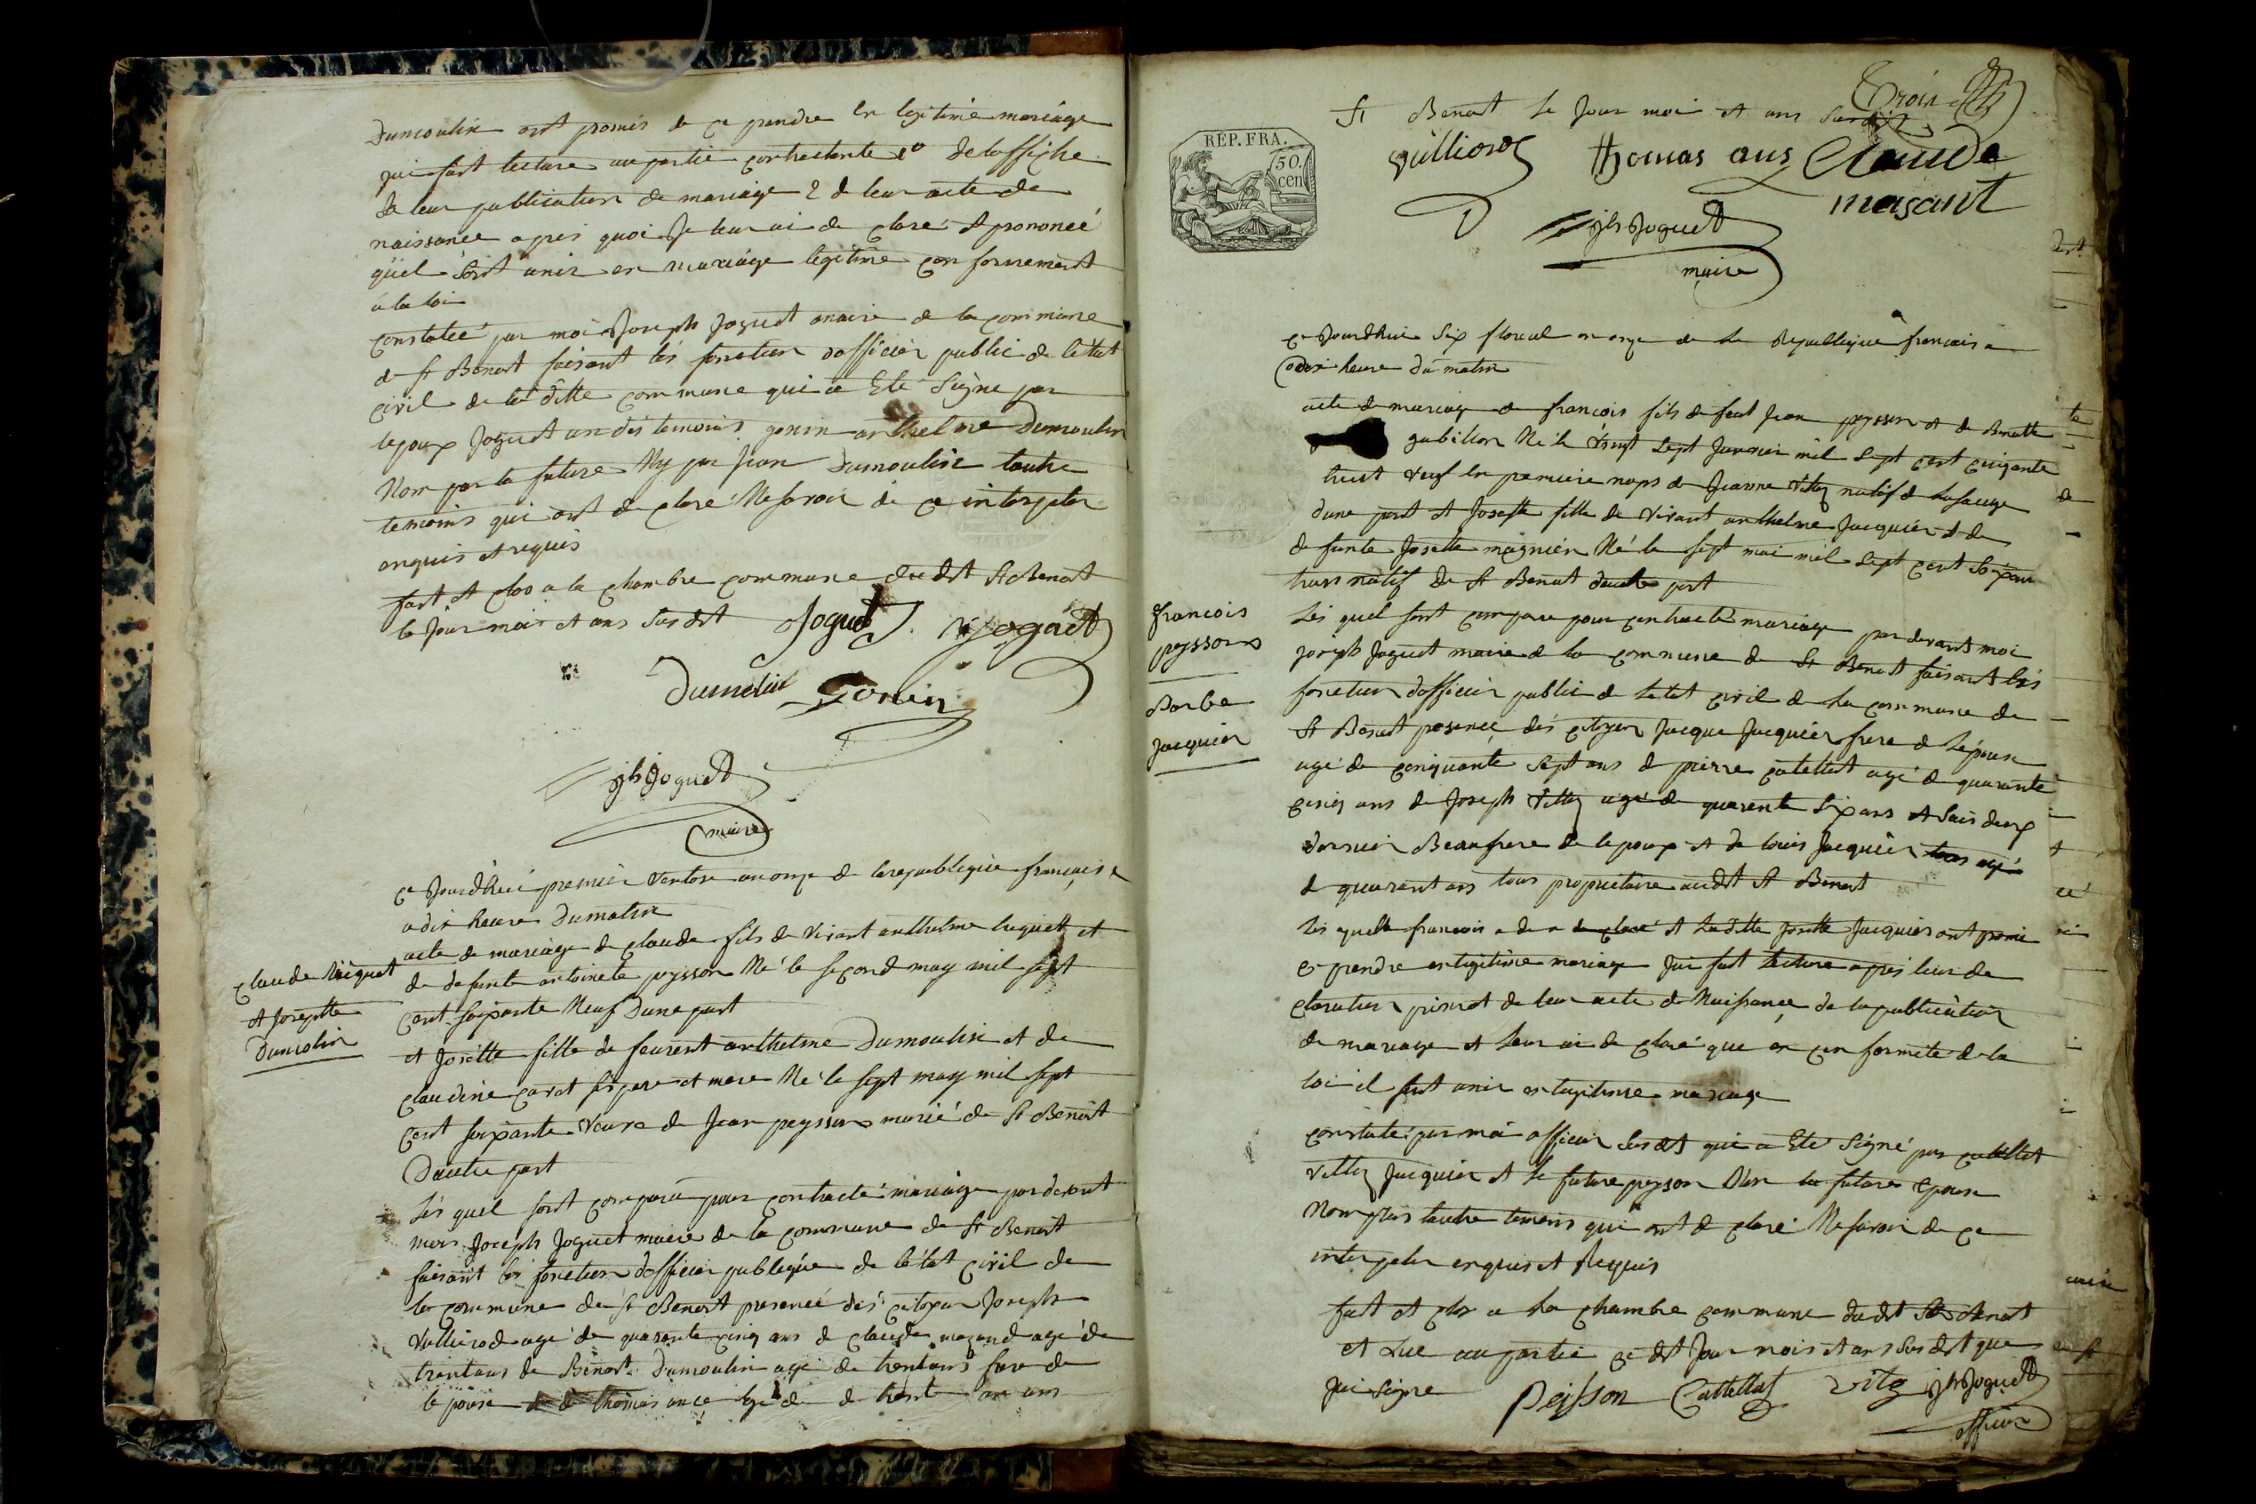 Dumoulin ont promis de ce prendre en legitime mariage
jai fait lecture au partie contractante 1º de laffiche
de leur publication de mariage 2 de leur acte de
naissance apres quoi je leur ai de claré et prononcé
quel sont unis en mariage legitime con formement
a la loi
constatée par moi Joseph Joguet maire de la commune
de st Benoit faisant les fonction dofficier public de letat
civil de la ditte commune qui a Eté Signe par
lepoux Joguet un des temoins gonin anthelme Dumoulin
Non par la future Ny par jean Dumoulin lautre
temoins qui ont de claré Ne savoir de ce interpeler
enquis et requis
fait et clos a la chambre commune du dit St Benoit
le jour mois et ans Sus dit Joguet Joguet
Dumolin Gonin
jh Joguet
maire
ce Jourdhui premier Ventose an onze de la republique française
a dix heure Du matin
acte de mariage de claude fils de vivant anthelme
de defunte antoineta peysson Né le second may mil sept
cent soixante Neuf Dune part
et Josette fille de feu anthelme Dumoulin et de
claudine ses pere et mere Né le sept may mil sept
cent soixante veuve de Jean peysson marié de St Benoit
Dautre part
Les quel sont comparu pour contracté mariage par devant
moi Joseph Joguet maire de la commune de St Benoit
faisant les fonction dofficier publique de letat civil de
la commune de St Benoit presence des citoyen Joseph
Vullierod agé de quarante cinq ans de claude mazand agé de
trentans de Benoit Dumoulin agé de trentans frere de
lepouse de thomas ance agé de trent un ans
claude
et Josephte
Dumolin
trois
St Benoit le Jour moi et ans Susdit
REP. FRA.
50.
cen
Vullierod Thomas ans Claude
masant
jh Joguet
maire
ce Jourdhui Six floreal an onze de la Republique francaise
a dix heure du matin
acte de mariage de francois fils de feut Jean peysson et de Benoitte
gabillon Né le vingt Sept Janvier mil Sept cent cinquante
huit veuf en premiere nops de Jeanne Vittoz natif de
dune part et Josette fille de vivant anthelme Jacquier et de
defunte Josette magnien Né le sept mai mil Sept cent Soixante
trois natif de St Benoit dautre part
Les quel sont comparu pour contracté mariage par devant moi
joseph Joguet maire de la commune de St Benoit faisant les
fonction dofficier public de letat civil de la commune de
St Benoit presence des citoyen Jacque Jacquier frere de Lepouse
agé de cinquante Sept ans de pierre catellat agé de quarante
cinq ans de Joseph Vittoz agé de quarente Six ans et Sais deux
dernier Beaufrere de lepoux et de louis Jacquier
de quarant ans tous proprietaire audit St Benoit
Les quelle francois et Laditte Josette Jacquier ont promi
ce prendre en legitime mariage Jai fait Lecture apres leur de
claration de leur acte de Naissance de la publication
de mariage et Leur ai de claré que en con formité de la
loi il sont unis en legitime mariage
constaté par moi officier Sus dit qui a Eté Signé par catellat
Vittoz Jacquier et le future peyson la future Epouse
Non plus lautre temoins qui ont de claré Ne savoir de ce
interpeler enquis et Requis
fait et clos a la chambre commune du dit St Benoit
et Lue au partie ce dit Jour mois et ans Sus dit que
Jai Signe Peysson Cattellat vitoz jh Joguet
officier
francois
peysson
Barbe
jacquier